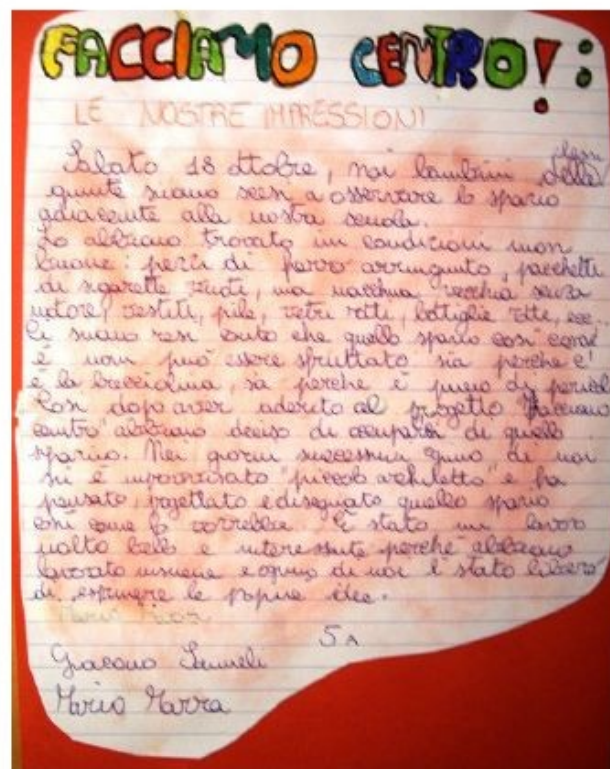 FACCIAMO CENTRO!:
LE NOSTRE IMPRESSIONI
Sabato 18 ottobre, noi bambini delle classi
quinte siamo scesi a osservare lo spazio
adiacente alla nostra scuola.
Lo abbiamo trovato in condizioni non
buone: pezzi di ferro arrugginito, pacchetti
di sigarette vuoti, una macchina vecchia senza
motore, vestiti, pile, vetri rotti, bottiglie rotte, ecc.
Ci siamo resi conto che quello spazio così com'
è non può essere sfruttato sia perché c'
è la brecciolina, sia perché è pieno di pericoli.
Così dopo aver aderito al progetto "Facciamo
centro" abbiamo deciso di occuparci di quello
spazio. Nei giorni successivi ognuno di noi
si è improvvisato "piccolo architetto" e ha
pensato, progettato e disegnato quello spazio
così come lo vorrebbe. È stato un lavoro
molto bello e interessante perché abbiamo
lavorato insieme e ognuno di noi è stato libero
di esprimere le proprie idee.
5A
Giacomo
Mario Marra